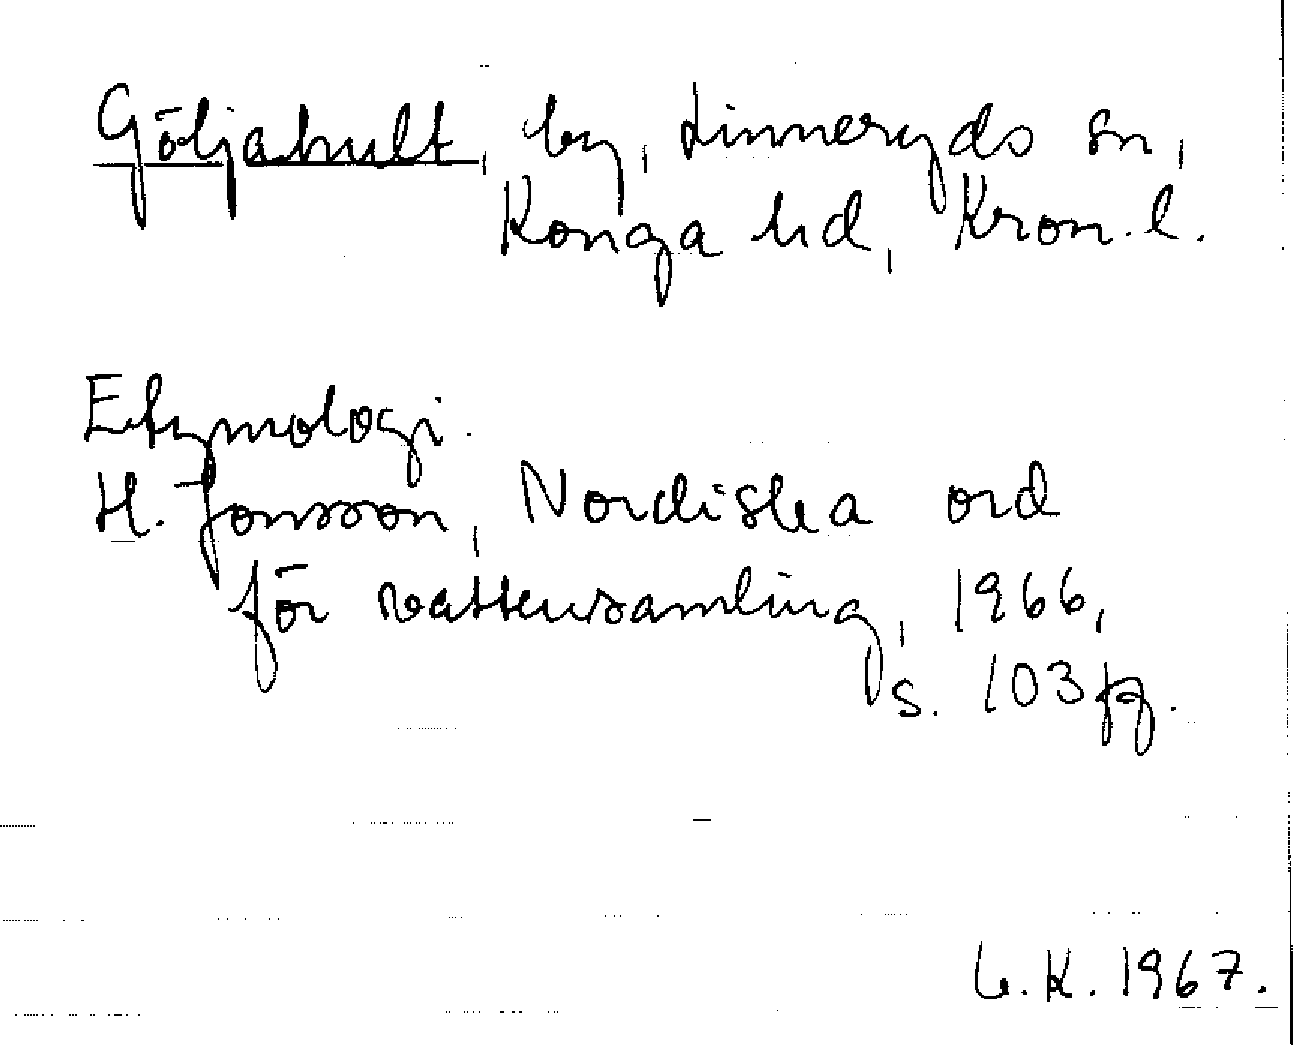 Göljahult, by, Linneryds sn,
Konga hd, Kron. l.
Etymologi.
H. Jonsson, Nordiska ord
för vattensamling, 1966,
s. 103 ff.
G.K. 1967.